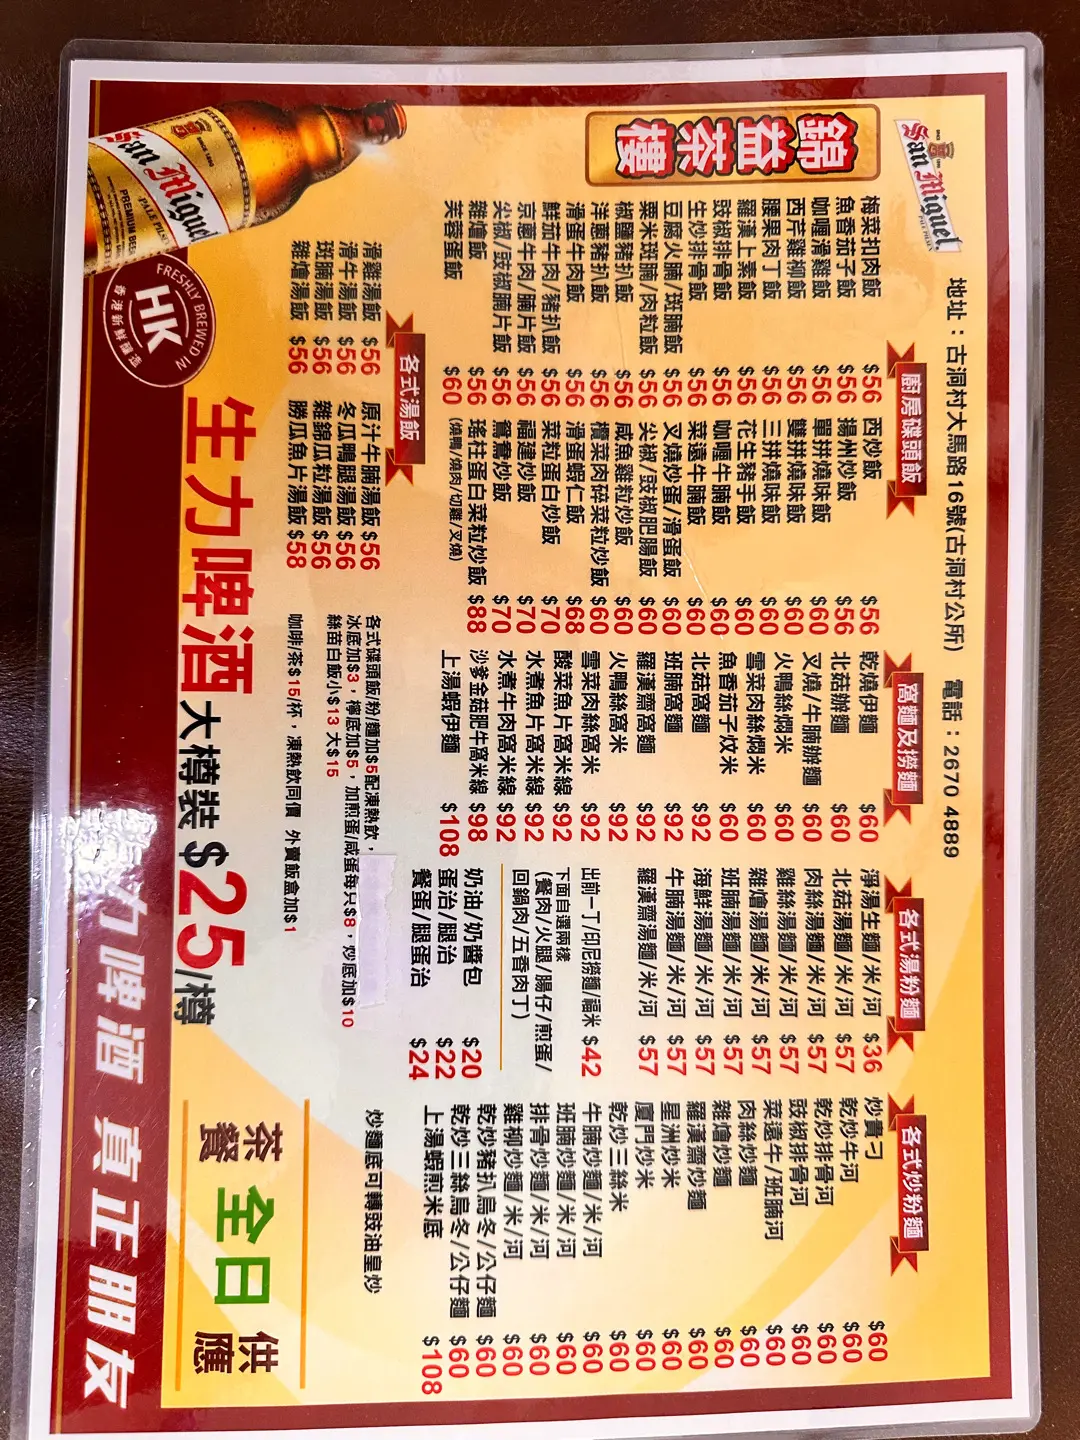 San Miguel
錦益茶樓
地址：古洞村大馬路16號(古洞村公所)　電話：2670 4889
廚房碟頭飯
梅菜扣肉飯 $56
魚香茄子飯 $56
咖喱滑雞飯 $56
西芹雞柳飯 $56
腰果肉丁飯 $56
羅漢上素飯 $56
豉椒排骨飯 $56
生炒排骨飯 $56
豆腐火腩/斑腩飯 $56
粟米斑腩/肉粒飯 $56
椒鹽豬扒飯 $56
洋蔥豬扒飯 $56
滑蛋牛肉飯 $56
鮮茄牛肉/豬扒飯 $56
京蔥牛肉/腩片飯 $56
尖椒/豉椒腩片飯 $56
雜燴飯 $56
芙蓉蛋飯 $60
西炒飯 $56
揚州炒飯 $56
單拼燒味飯 $60
雙拼燒味飯 $60
三拼燒味飯 $60
花生豬手飯 $60
咖喱牛腩飯 $60
菜遠牛腩飯 $60
叉燒炒蛋/滑蛋飯 $60
尖椒/豉椒肥腸飯 $60
咸魚雞粒炒飯 $60
欖菜肉碎菜粒炒飯 $60
滑蛋蝦仁飯 $68
菜粒蛋白炒飯 $70
福建炒飯 $70
鴛鴦炒飯 $70
瑤柱蛋白菜粒炒飯 $88
(燒鴨/燒肉/切雞/叉燒)
各式湯飯
滑雞湯飯 $56
滑牛湯飯 $56
斑腩湯飯 $56
雜燴湯飯 $56
原汁牛腩湯飯 $56
冬瓜鴨腿湯飯 $56
雜錦瓜粒湯飯 $56
勝瓜魚片湯飯 $58
窩麵及撈麵
乾燒伊麵 $60
北菇辦麵 $60
叉燒/牛腩辦麵 $60
火鴨絲燜米 $60
雪菜肉絲燜米 $60
魚香茄子炆米 $60
北菇窩麵 $92
班腩窩麵 $92
羅漢齋窩麵 $92
火鴨絲窩米 $92
雪菜肉絲窩米 $92
酸菜魚片窩米線 $92
水煮魚片窩米線 $92
水煮牛肉窩米線 $92
沙爹金菇肥牛窩米線 $98
上湯蝦伊麵 $108
各式湯粉麵
淨湯生麵/米/河 $36
北菇湯麵/米/河 $57
肉絲湯麵/米/河 $57
雞絲湯麵/米/河 $57
雜燴湯麵/米/河 $57
班腩湯麵/米/河 $57
海鮮湯麵/米/河 $57
牛腩湯麵/米/河 $57
羅漢齋湯麵/米/河 $57
出前一丁/印尼撈麵/福米 $42
下面自選兩樣
(餐肉/火腿/腸仔/煎蛋/
回鍋肉/五香肉丁)
奶油/奶醬包 $20
蛋治/腿治 $22
餐蛋/腿蛋治 $24
各式炒粉麵
炒貴刁 $60
乾炒牛河 $60
乾炒排骨河 $60
豉椒排骨河 $60
菜遠牛/班腩河 $60
肉絲炒麵 $60
雜燴炒麵 $60
羅漢齋炒麵 $60
星洲炒米 $60
廈門炒米 $60
乾炒三絲米 $60
牛腩炒麵/米/河 $60
班腩炒麵/米/河 $60
排骨炒麵/米/河 $60
雞柳炒麵/米/河 $60
乾炒豬扒烏冬/公仔麵 $60
乾炒三絲烏冬/公仔麵 $60
上湯蝦煎米底 $108
炒麵底可轉豉油皇炒
各式碟頭飯/粉/麵加$5配凍熱飲，
冰底加$3，檸底加$5，加煎蛋/咸蛋每只$8，炒底加$10
絲苗白飯小$13 大$15
咖啡/茶$15/杯，凍熱飲同價 外賣飯盒加$1
San Miguel
PALE PILSEN
PREMIUM BEER
FRESHLY BREWED IN
HK
香港新鮮釀製
生力啤酒 大樽裝 $25/樽
茶餐 全日 供應
生力啤酒 真正朋友